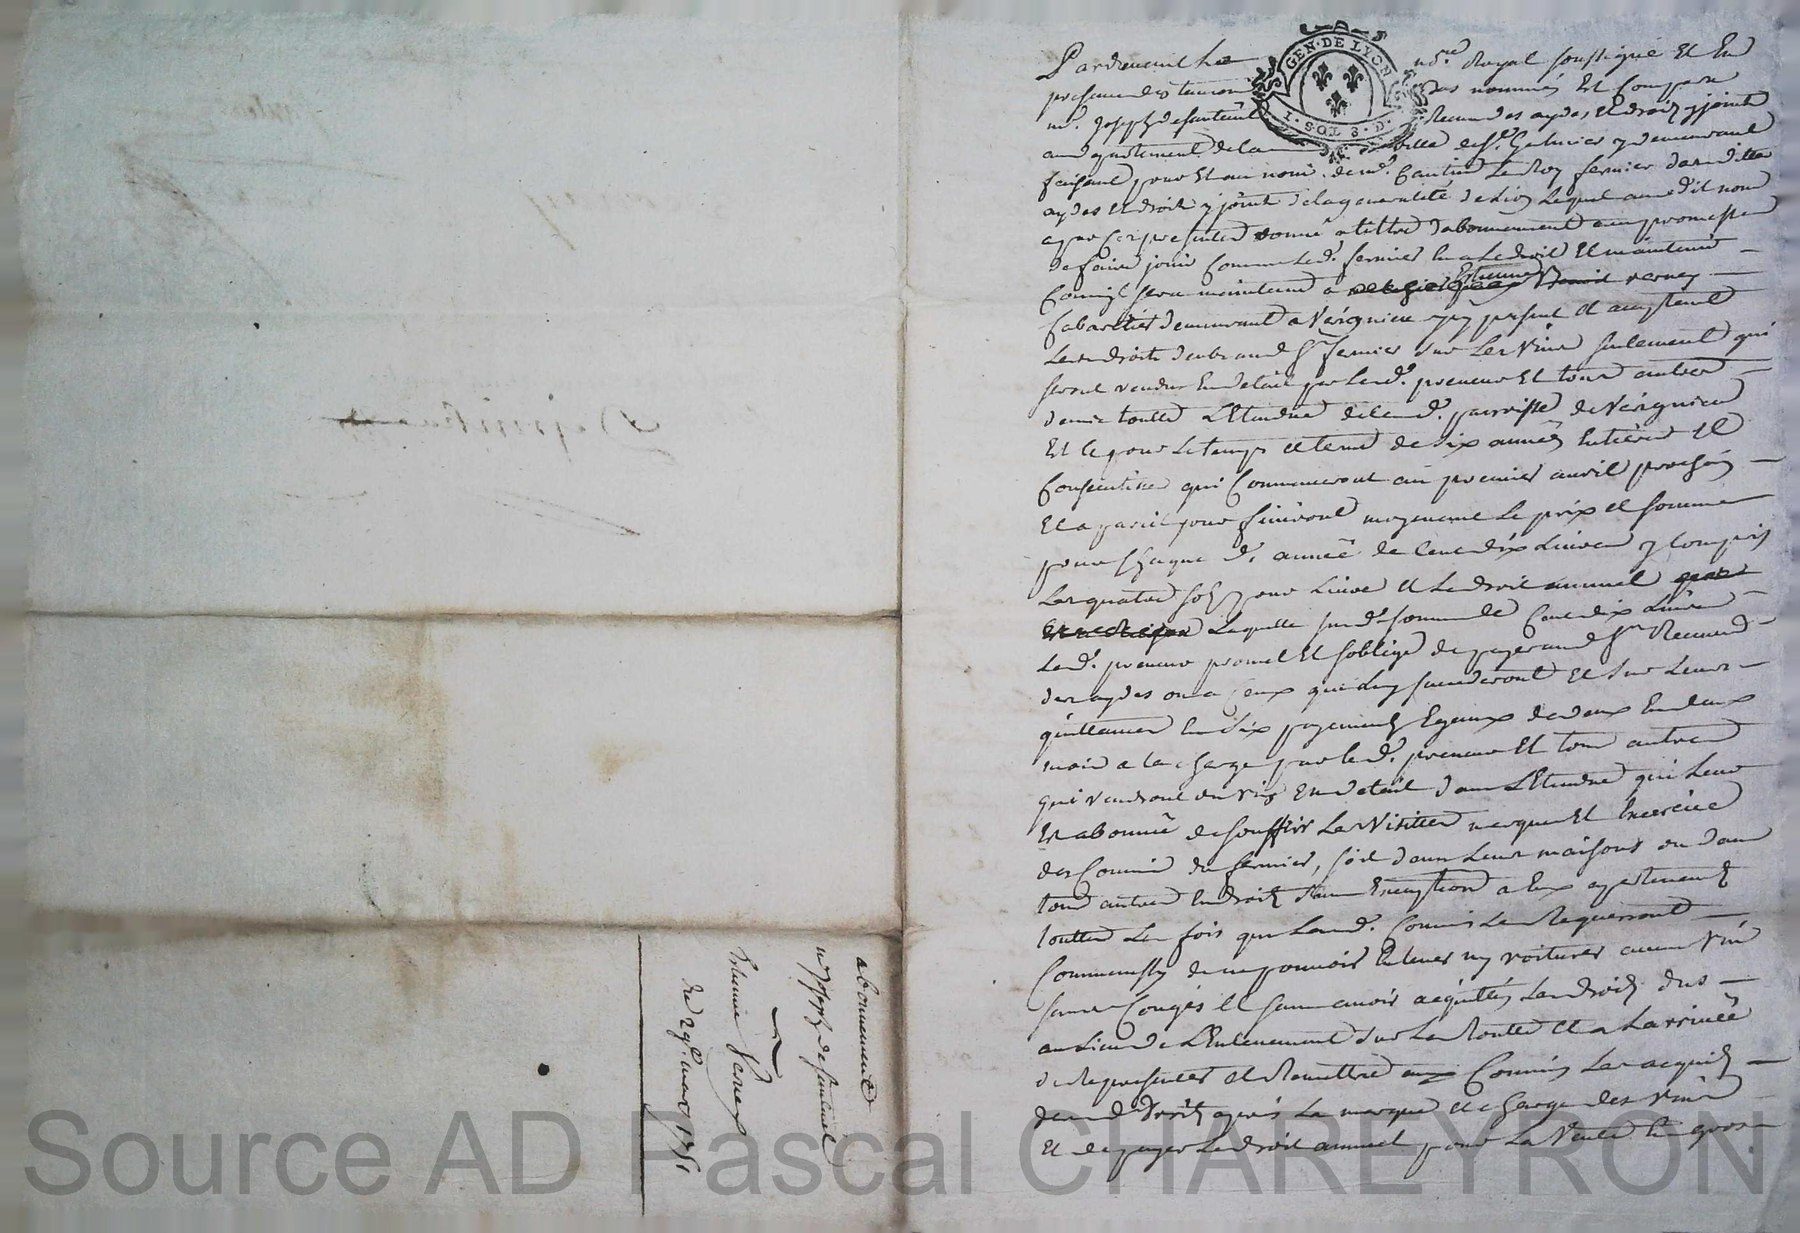 Pardevant Le no.re Royal soussigné Et En
GEN·DE LYON
I·SOL·8·D·
presence des temoins bas nommés Et Compara
m.r Joseph desauteuil Receveur des aydes Et droits y joints
au departement de la ville de S.t Galmier y demeurant
faisant pour Et au nom de m.r Le Roy fermier desdittes
aydes Et droits y joints de la generalité de Lion Lequel audit nom
a par Ces presentes donné a tittre d'abonnement avec promesse
de faire jouir Comme Led. fermier En a Le droit Et maintenir
Comme il sera maintenu a Estienne verney
Cabaretier demeurant a Verigniere icy present Et acceptant
Les droits deubs aud S.r fermier sur Les Vins seulement qui
seront vendus En detail par Led. preneur Et tous autres
dans toutte L'Etendue de lad. parroisse de Verignieu
Et Ce pour Le temps et terme de six années Entieres Et
Consecutives qui Commenceront au premier avril prochain
Et a pareil jour finiront moyenant Le prix et somme
pour Chaque d. année de Cent dix Livres y Compris
Les quatre sols pour Livre et Le droit annuel
Laquelle susd. somme de Cent dix Livres
Led. preneur promet Et s'oblige de payer aud S.r Receveur
des aydes ou a Ceux qui Luy succederont Et sur Leurs
quittances En six payements Egaux de deux En deux
mois a la Charge par led. preneur Et tous autres
qui Vendront du vin En detail dans L'Etendue qui Leur
Est abonnée de souffrir Les Visittes marques Et Exercice
des Commis du fermier, soit dans Leurs maisons ou dans
tous autres Endroits sans Exception a Eux apartenants
touttes Les fois que Lesd. Commis Le Requerront
Comm'aussy de ne pouvoir Enlever ny voiturer aucun Vin
sans Congés Et sans avoir acquittés Les droits dus
au Lieu de L'Enlevement sur La Routte Et a L'arrivée
de Representer et Remettre aux Commis Les acquits
desd. droits après La marque et charge des vins
Et de payer Le droit annuel pour La Vente En gros
abonnement
m.r Joseph desauteuil
a
Estienne Verney
du 29.e mars 1751
Source AD Pascal CHAREYRON